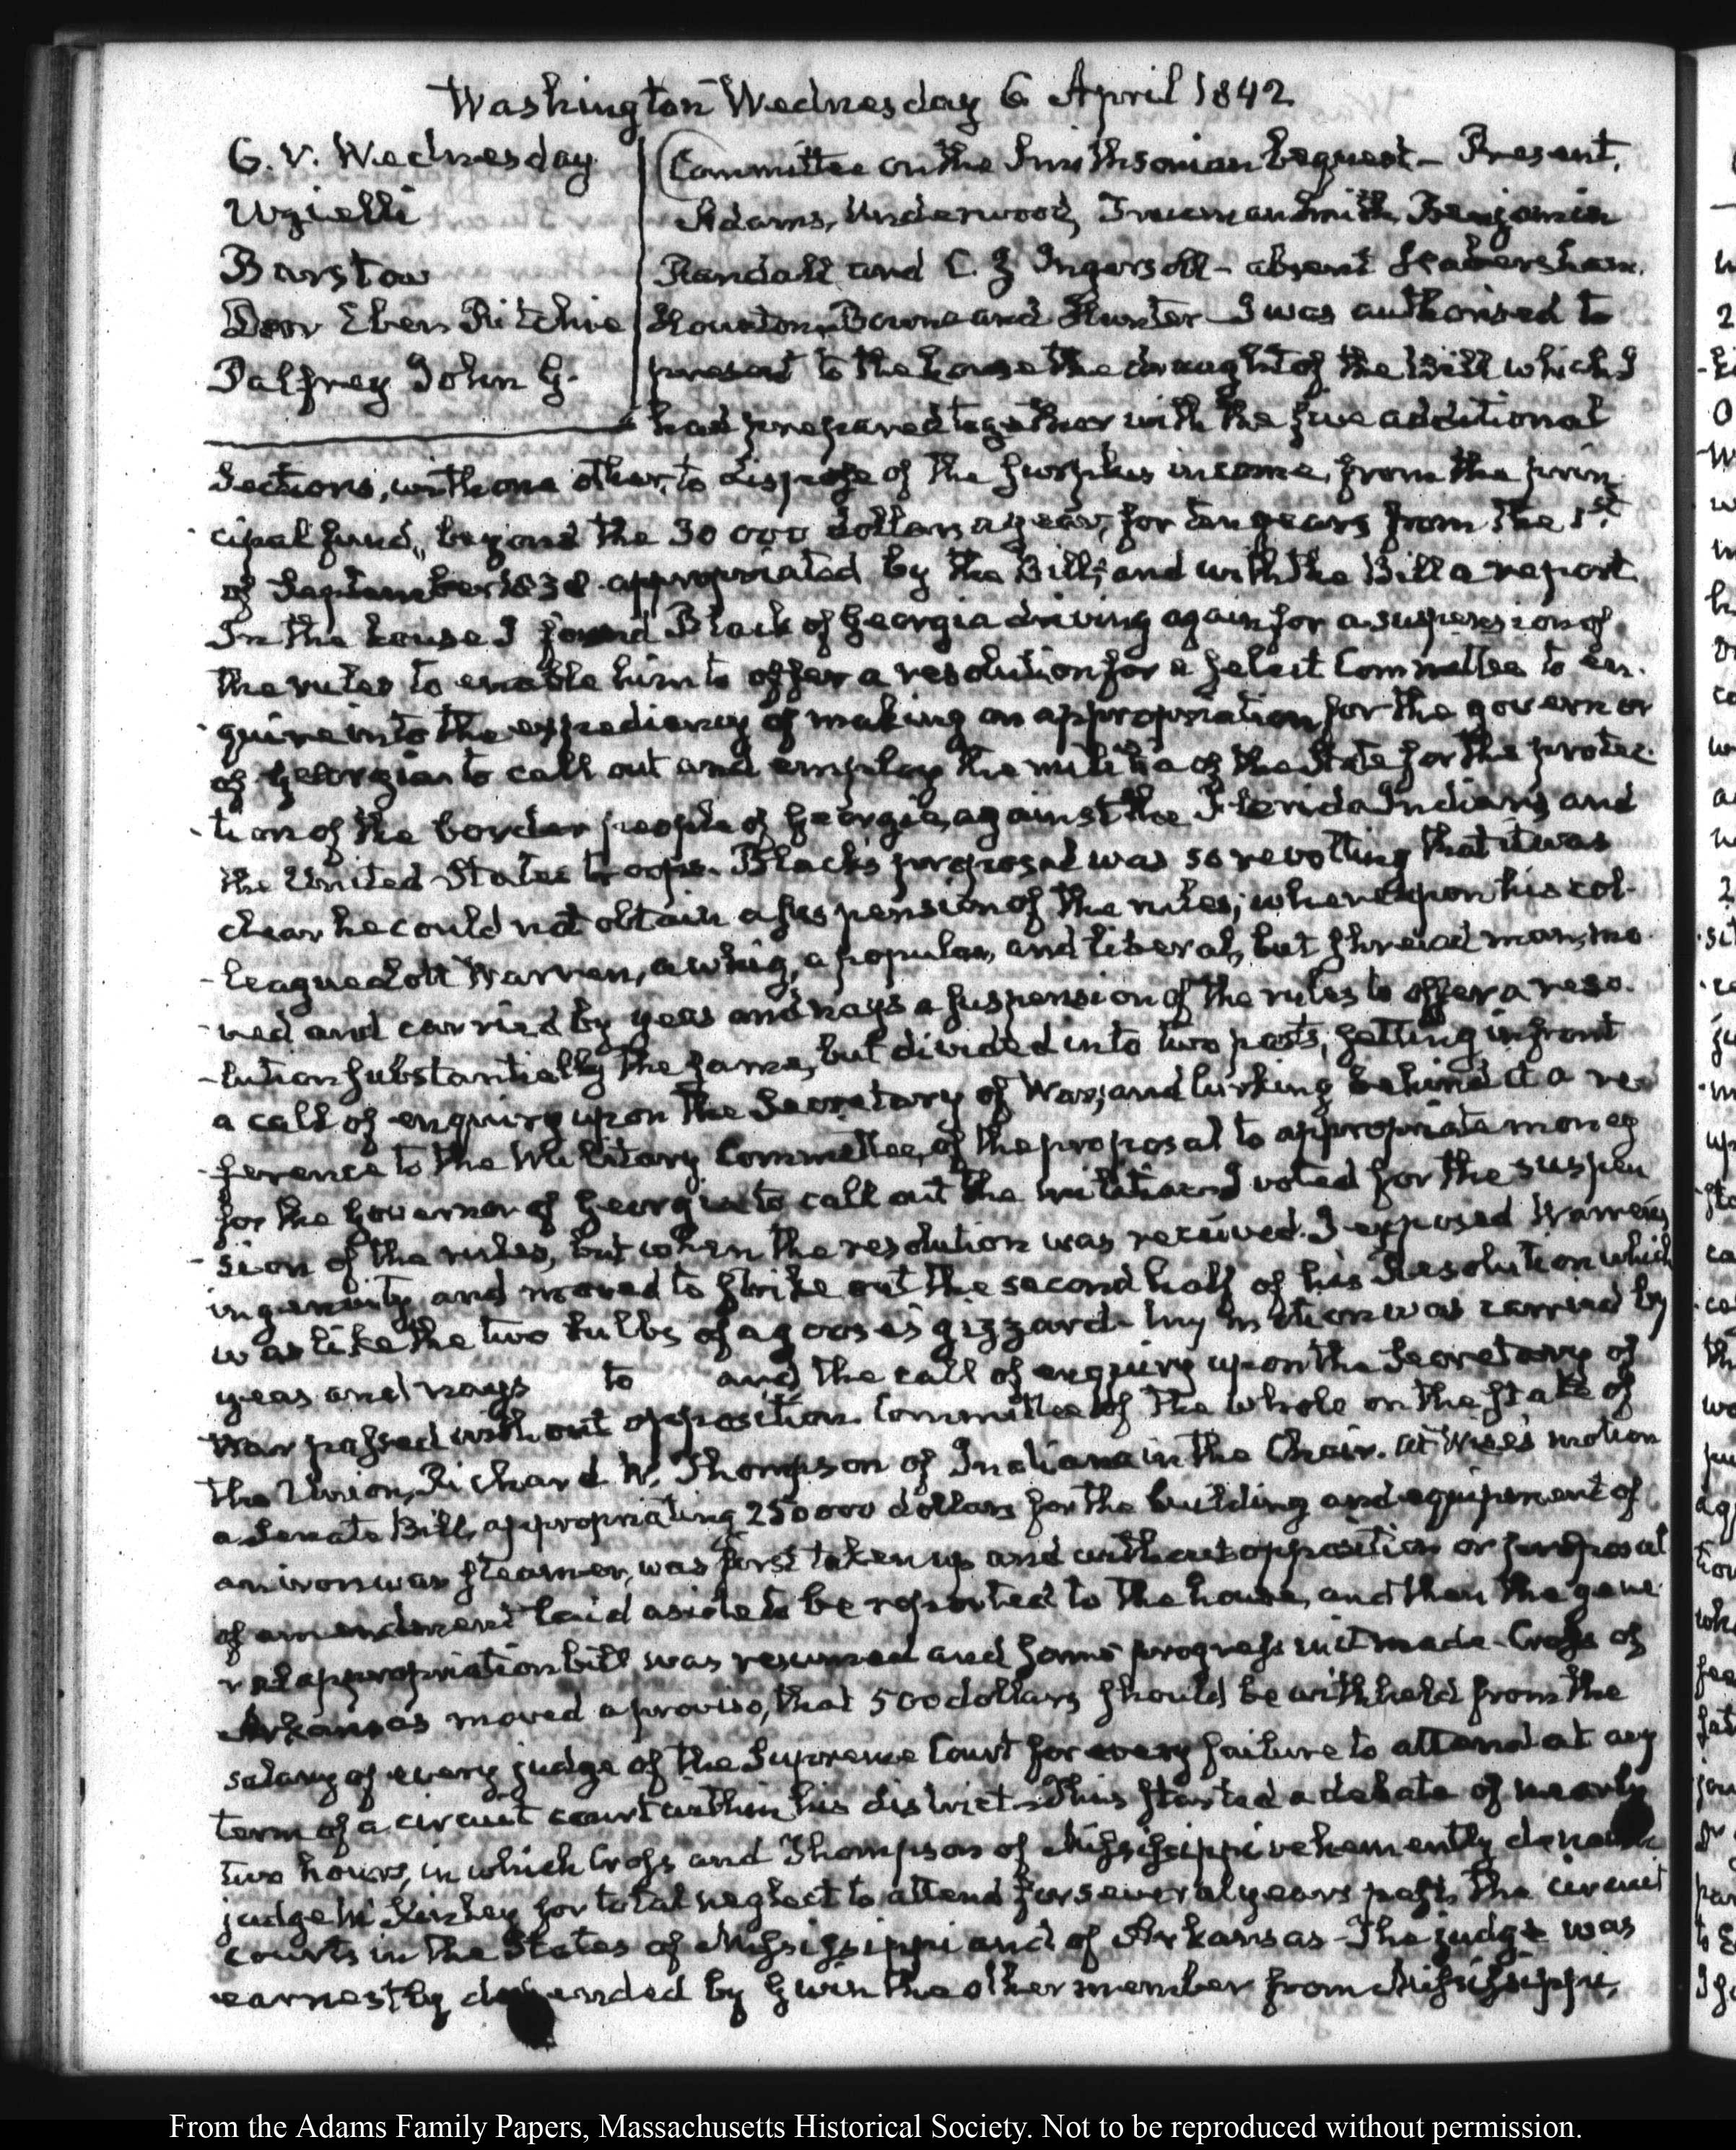 Washington Wednesday 6 April 1842
6. V. Wednesday
Uzielli
Barstow
Dorr Eben Ritchie
Palfrey John G.
Committee on the Smithsonian bequest — Present,
Adams, Underwood, Truman Smith, Benjamin
Randall and C. J. Ingersoll — absent Habersham.
Houston, Bowne and Hunter — I was authorised to
present to the house the draught of the Bill which I
had prepared together with the five additional
Sections, with one other, to dispose of the surplus income, from the prin-
cipal fund, beyond the 30 000 dollars a year, for ten years from the 1st
of September 1838 appropriated by the Bill; and with the Bill a report
In the house I found Black of Georgia driving again for a suspension of
the rules to enable him to offer a resolution for a select Committee to en-
quire into the expediency of making an appropriation for the governor
of Georgia to call out and employ the militia of the State for the protec-
tion of the border people of Georgia, against the Florida Indians and
the United States troops. Black's proposal was so revolting that it was
clear he could not obtain a suspension of the rules; whereupon his col-
league Lott Warren, a whig, a popular, and liberal, but shrewd man, mo-
ved and carried by yeas and nays a suspension of the rules to offer a reso-
lution substantially the same, but divided into two parts, setting in front
a call of enquiry upon the Secretary of War; and lurking behind it a re-
ference to the Military Committee, of the proposal to appropriate money
for the Governor of Georgia to call out the militia — I voted for the suspen
sion of the rules, but when the resolution was received. I exposed Warren's
ingenuity and moved to strike out the second half of his Resolution which
was like the two bulbs of a goose's gizzard — my motion was carried by
yeas and nays to and the call of enquiry upon the Secretary of
War passed without opposition. Committee of the whole on the state of
the Union, Richard W. Thompson of Indiana in the Chair. At Wise's motion
a Senate Bill, appropriating 250000 dollars for the building and equipment of
an iron war steamer, was first taken up and without opposition or proposal
of amendment laid aside to be reported to the house, and then the gene
ral appropriation bill was resumed and some progress in it made. Cross of
Arkansas moved a proviso, that 500 dollars should be withheld from the
salary of every judge of the Supreme Court for every failure to attend at any
term of a circuit court within his district — This started a debate of nearly
two hours, in which Cross and Thompson of Mississippi vehemently
judge McKinley for total neglect to attend for several years past, the circuit
courts in the States of Mississippi and of Arkansas — The judge was
earnestly defended by Gwin the other member from Mississippi,
From the Adams Family Papers, Massachusetts Historical Society. Not to be reproduced without permission.